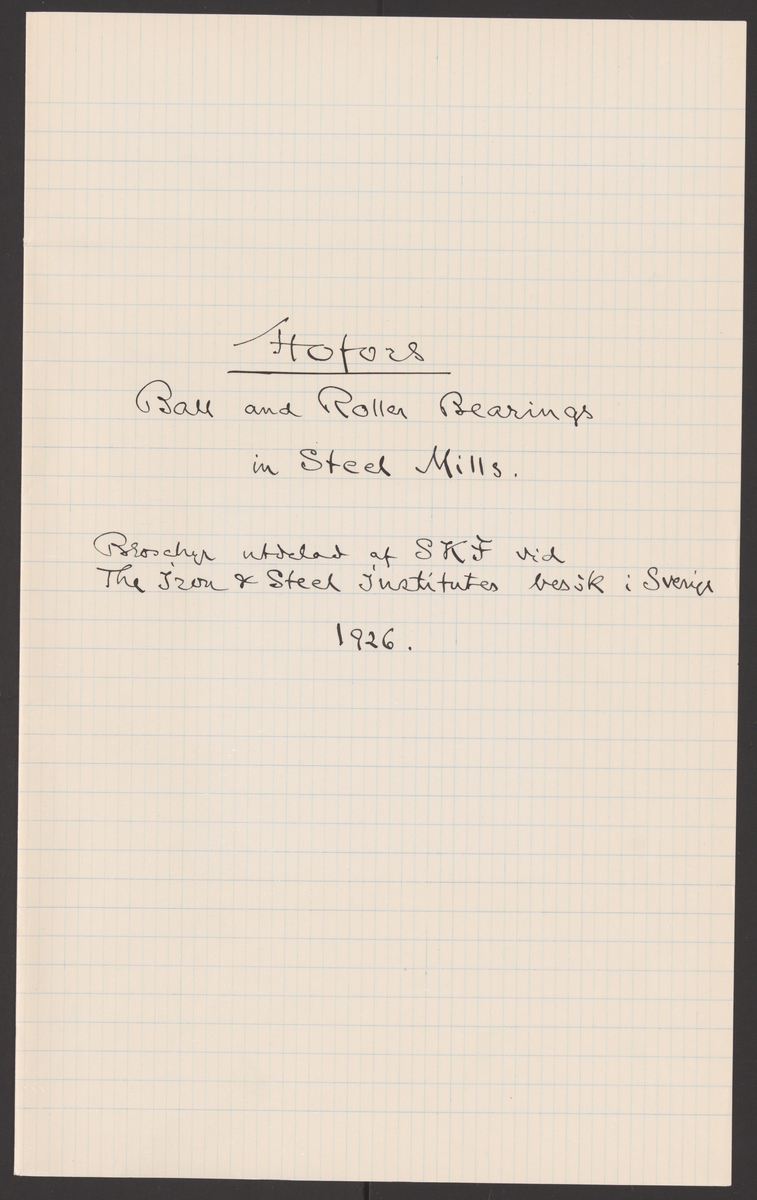 Hofors
Ball and Roller Bearings
in Steel Mills.
Broschyr utdelad af SKF vid
The Iron & Steel Institutes besök i Sverige
1926.